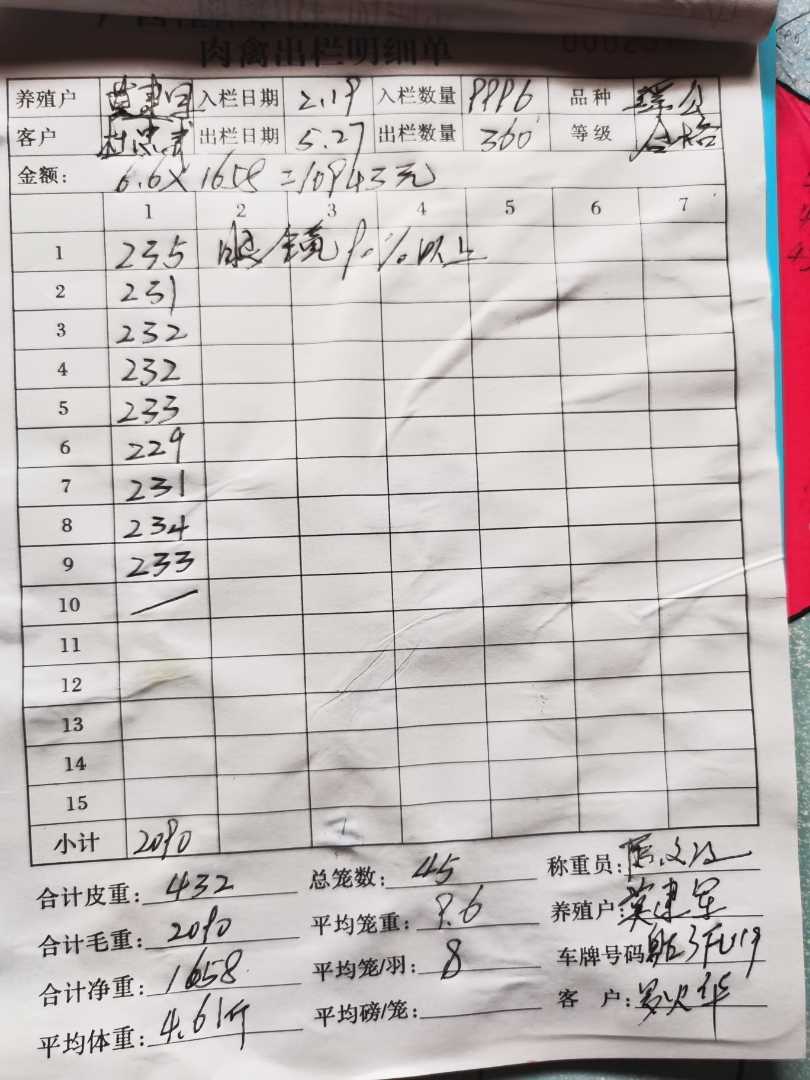 肉禽出栏明细单
养殖户 入栏日期 2.19 入栏数量 9996 品种
客户 出栏日期 5.27 出栏数量 360 等级 合格
金额: 6.6×1658=10943元
1 2 3 4 5 6 7
1 235 眼镜90%以上
2 231
3 232
4 232
5 233
6 229
7 231
8 234
9 233
10 /
11
12
13
14
15
小计 2090
合计皮重: 432 总笼数: 45 称重员:
合计毛重: 2090 平均笼重: 9.6 养殖户: 黄建军
合计净重: 1658 平均笼/羽: 8 车牌号码
平均体重: 4.61斤 平均磅/笼: 客 户: